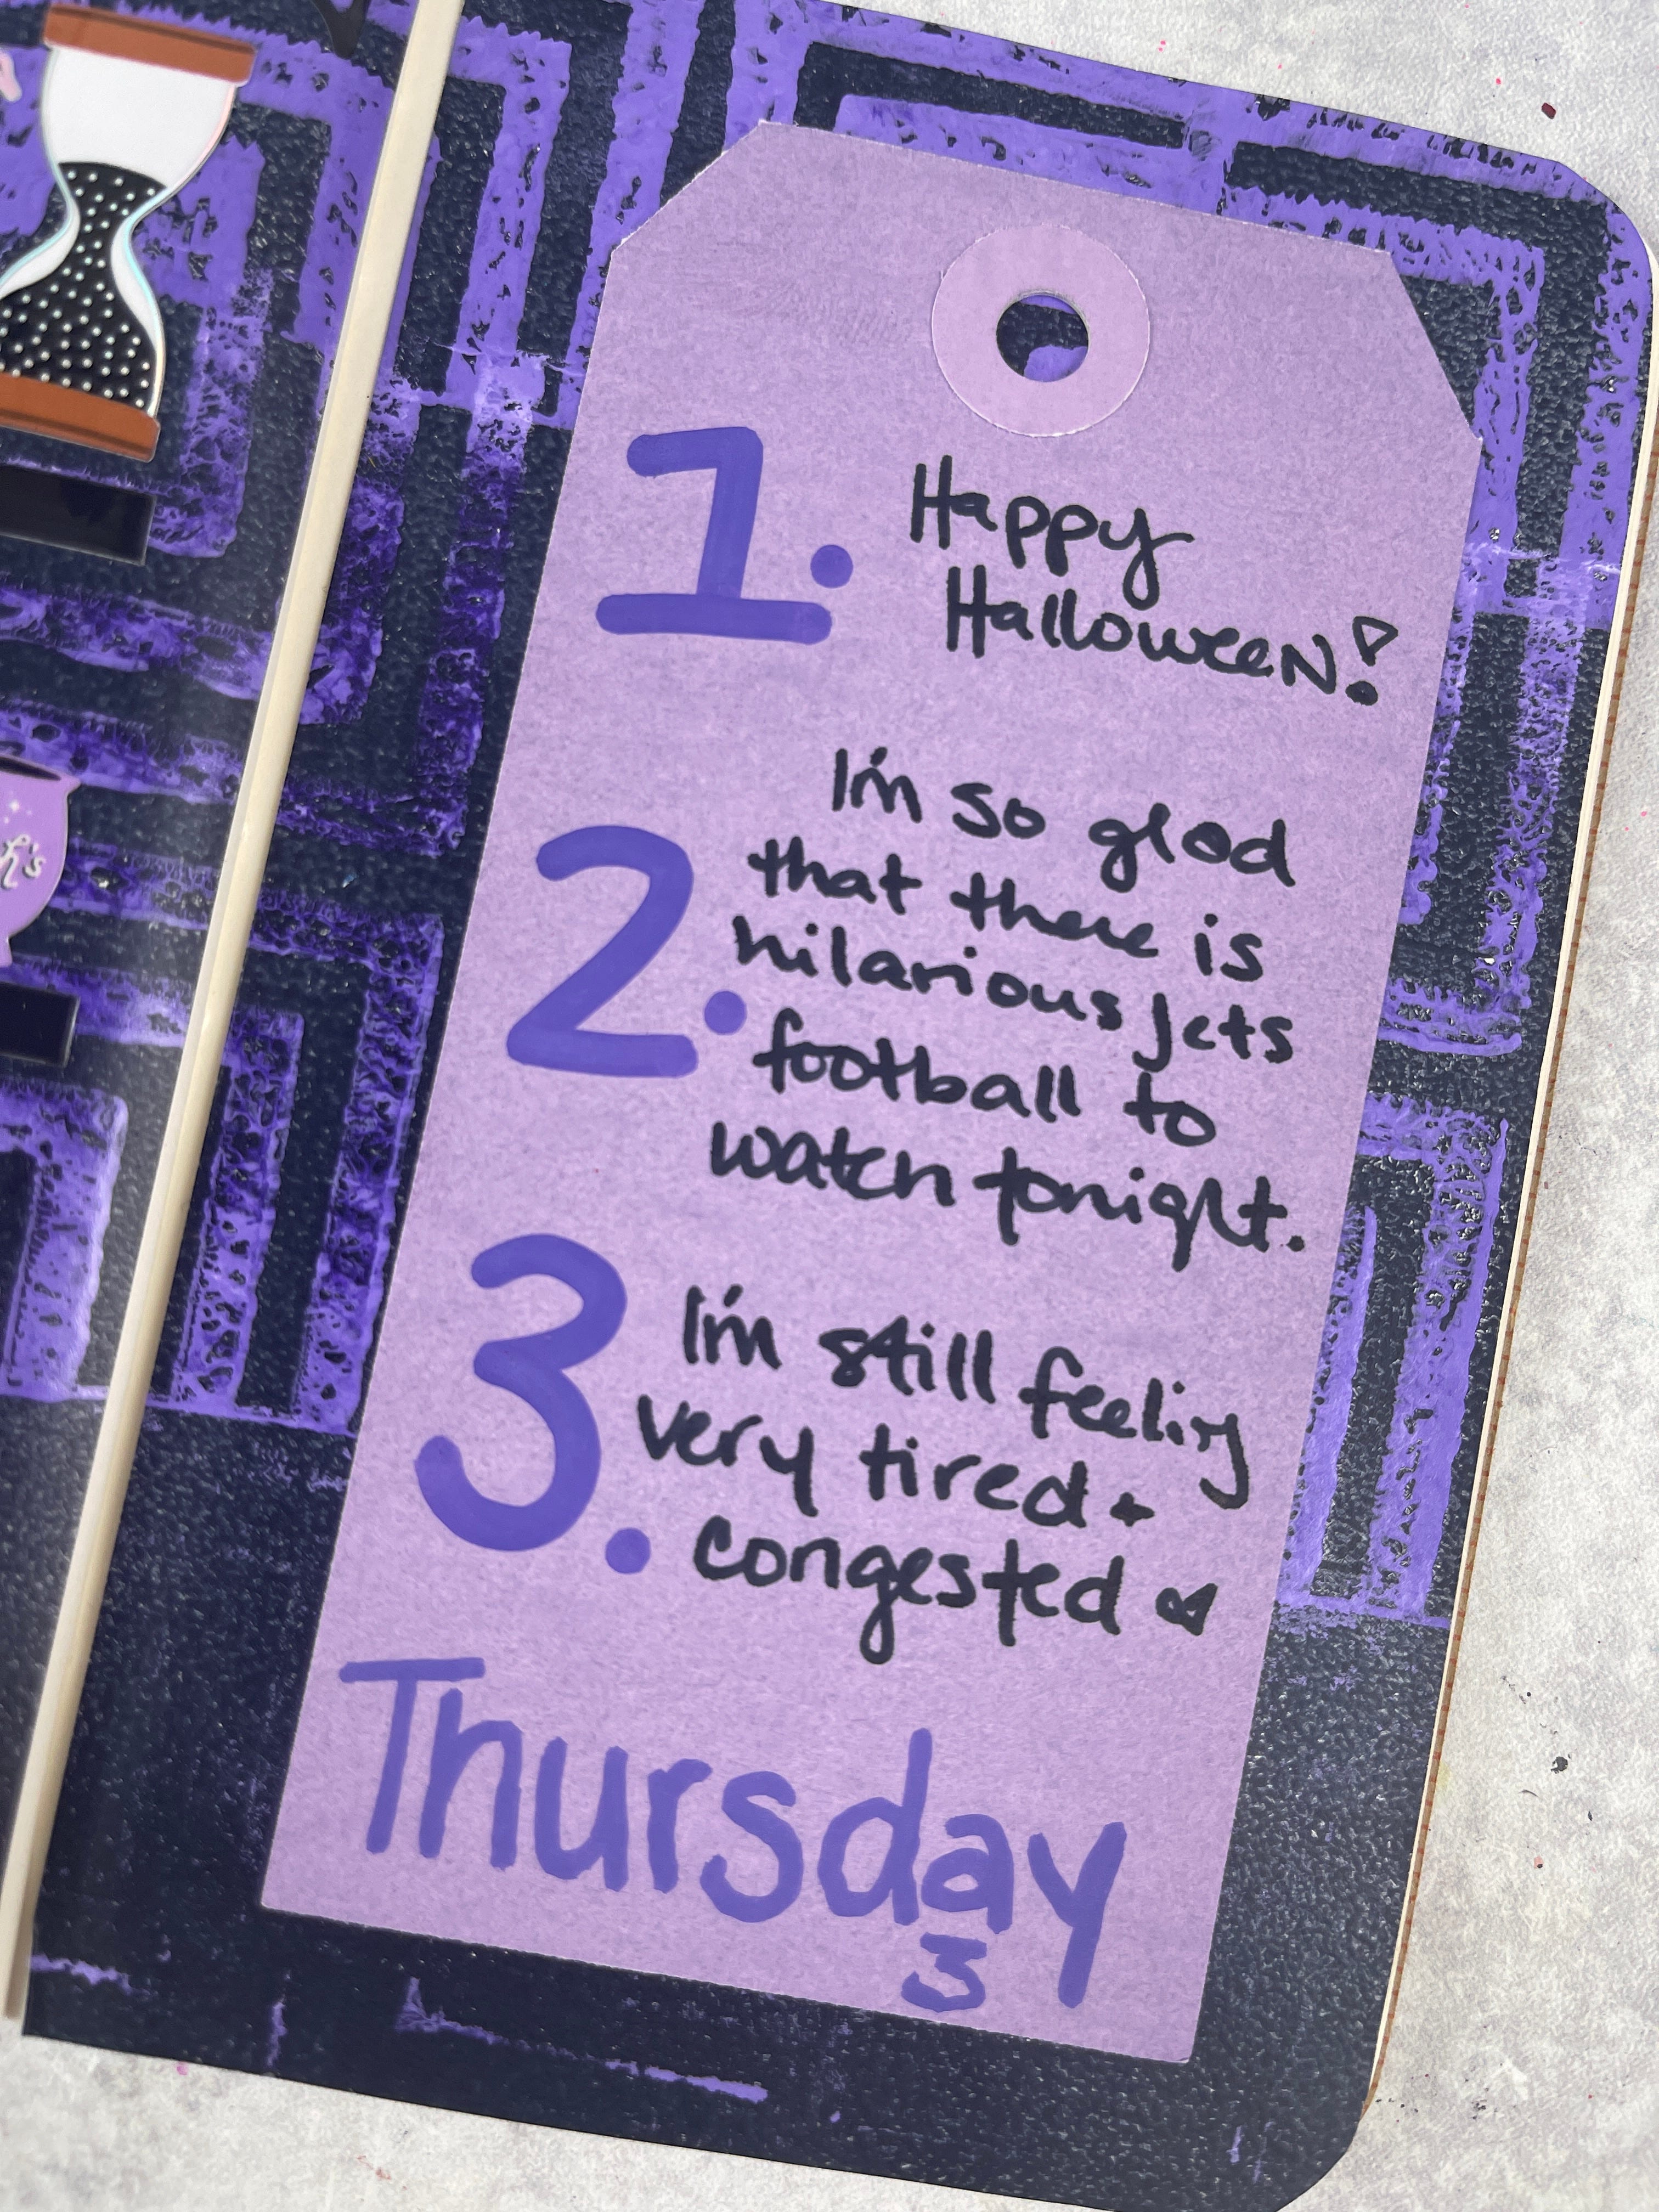 1. Happy
Halloween!
2. I'm so glad
that there is
hilarious Jets
football to
watch tonight.
3. I'm still feeling
very tired +
congested
Thursday
3
h's